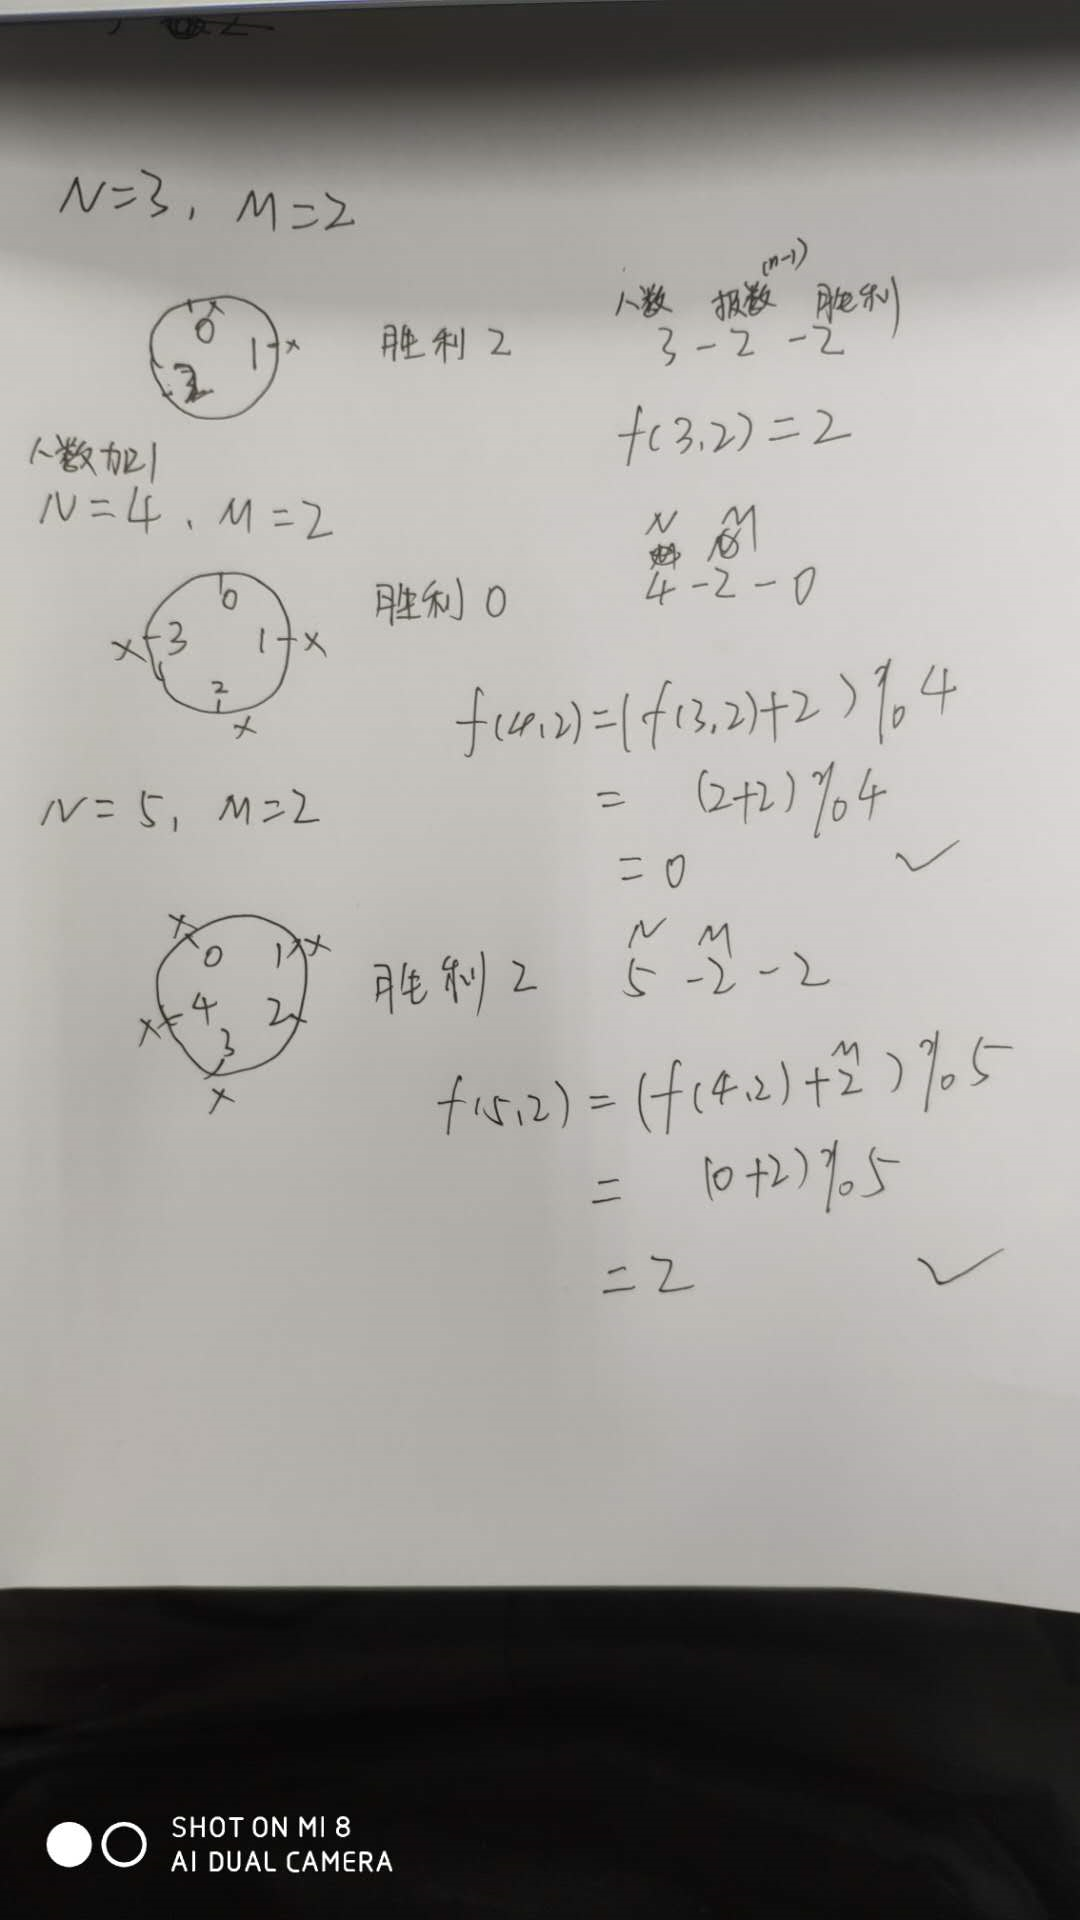 N=3, M=2
(n-1)
人数 报数 胜利
0
1
2
胜利 2
3-2-2
f(3,2)=2
人数加1
N=4、M=2
N M
4-2-0
0
3 1
2
胜利 0
f(4,2)=(f(3,2)+2)%4
= (2+2)%4
=0
N=5, M=2
N M
5-2-2
0 1
4 2
3
胜利 2
M
f(5,2)=(f(4,2)+2)%5
= (0+2)%5
=2
SHOT ON MI 8
AI DUAL CAMERA